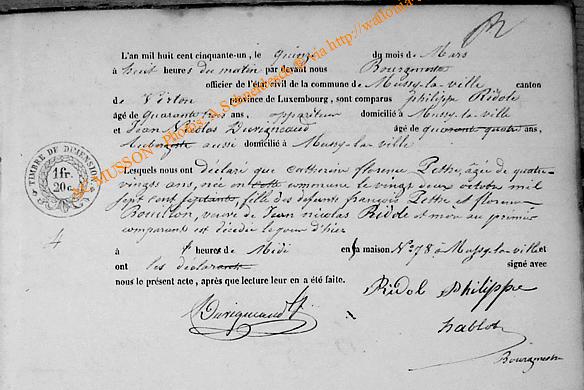 L'an mil huit cent cinquante-un, le quinze du mois de Mars
à huit heures du matin par devant nous Bourgmestre
officier de l'état civil de la commune de Mussy-la-ville canton
de Virton province de Luxembourg, sont comparus philippe Ridole
âgé de Quarante ans, domicilié à Mussy-la-ville
et Jean Nicolas Duvigneaud âgé de quarante quatre ans,
aussi domicilié à Mussy-la-ville
Lesquels nous ont déclaré que catherine florence Pettre, âgée de quatre
vingts ans, née en cette commune le vingt deux octobre mil
sept cent septante, fille des defunts françois Pettre et florence
Bouillon, veuve de Jean nicolas Ridole et mere au premier
comparant est décédée le jour d'hier
à heures de Midi en sa maison N° 78 à Mussy-la-ville et
ont les déclarant signé avec
nous le présent acte, après que lecture leur en a été faite.
Duvigneaud
Ridol Philippe
hablot
Bourgmestre
TIMBRE DE DIMENSION
1fr.
20c.
4
MUSSON Photos A.Schneider @ via http://wallonia